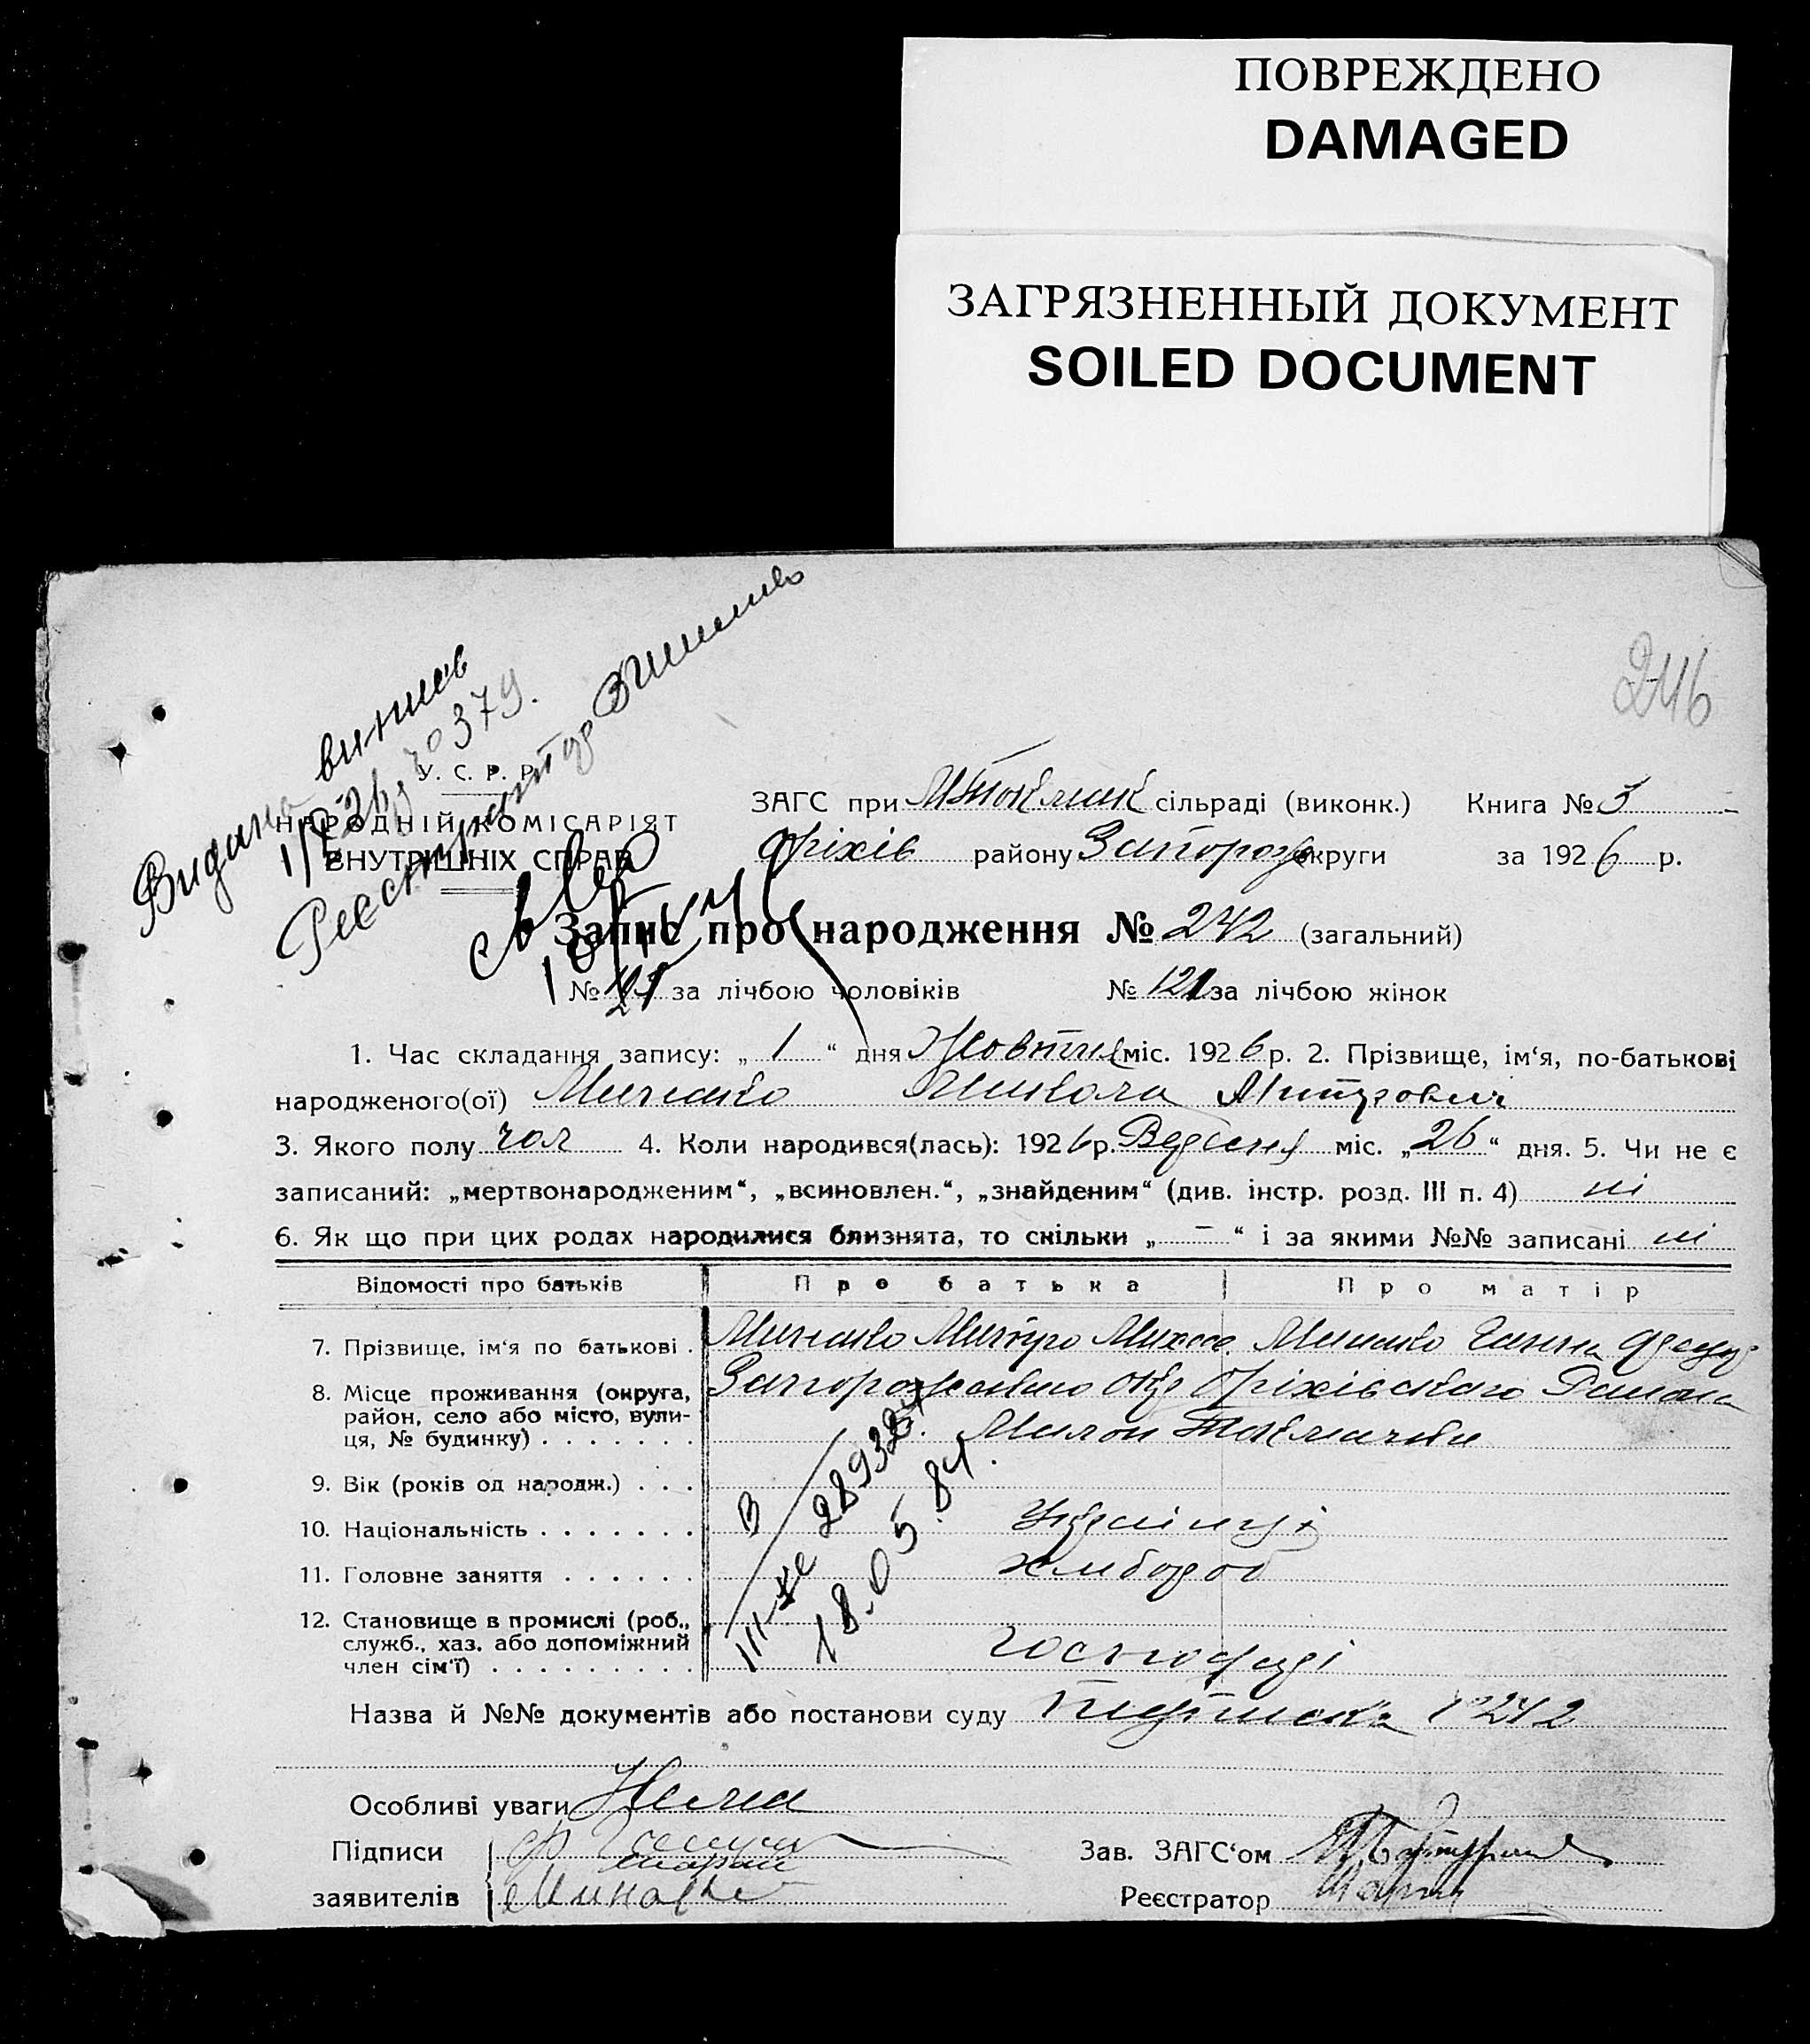 ПОВРЕЖДЕНО
DAMAGED
ЗАГРЯЗНЕННЫЙ ДОКУМЕНТ
SOILED DOCUMENT
246
Видано випись
379.
Реєстратор
У. С. Р. Р.
НАРОДНІЙ КОМІСАРІЯТ
ВНУТРІШНІХ СПРАВ
ЗАГС при М Токмак сільраді (виконк.) Книга № 3
Оріхів району Запороз округи за 1926 р.
Запис про народження № 242 (загальний)
№ 121 за лічбою чоловіків № 121 за лічбою жінок
1. Час складання запису: „ 1 “ дня Жовтня міс. 1926 р. 2. Прізвище, ім‘я, по-батькові
народженого(ої) Микола Митрович
3. Якого полу чол 4. Коли народився(лась): 1926 р. Вересня міс. „ 26 “ дня. 5. Чи не є
записаний: „мертвонародженим“, „всиновлен.“, „знайденим“ (див. інстр. розд. III п. 4) ні
6. Як що при цих родах народилися близнята, то скільки „ – “ і за якими №№ записані ні
Відомості про батьків Про батька Про матір
7. Прізвище, ім‘я по батькові . Митро Миха. Ганна
8. Місце проживання (округа, Запорожського Окр Оріхівського Району
район, село або місто, вули-
ця, № будинку) . . . . . . . Малой Токмачки
9. Вік (років од народж.) . . .
10. Національність . . . . . . . Українці
11. Головне заняття . . . . . . хлібороб
12. Становище в промислі (роб.,
служб., хаз. або допоміжний
член сім‘ї) . . . . . . . . . господарі
III-ЖС 289324
18.05.84.
Назва й №№ документів або постанови суду Підписка № 242
Особливі уваги Нема
Підписи
заявителів
Зав. ЗАГС‘ом
Реєстратор